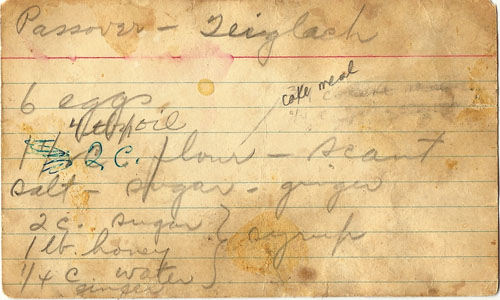 Passover - Teiglach
cake meal
6 eggs
oil
2 c. flour - scant
salt - sugar - ginger
2 c. sugar } syrup
1 lb. honey
1/4 c water
ginger